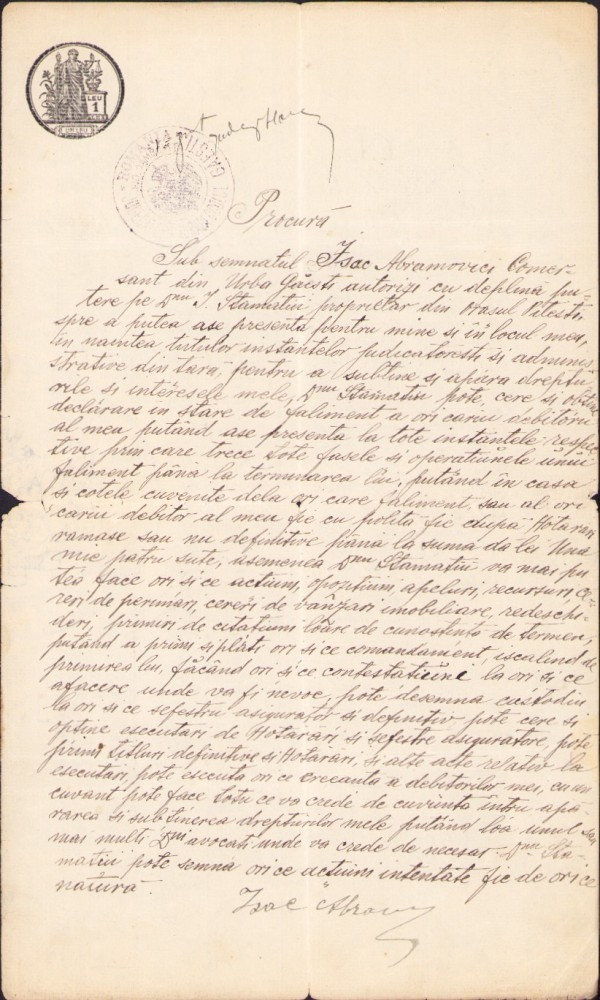 LEU
1
UN LEU
ROMANIA
Procură
Sub semnatul Isac Abramovici Comer-
sant din Urba Găesti autorizi cu deplina pu-
tere pe Dnu I. Stamatiu proprietar din orasul Pitesti
spre a putea ase presenta pentru mine si în locul meu,
in naintea tutulor instantelor judicatoresti si adminis
strative din tara, pentru a sustine si apara dreptu
rile si interesele mele, Dnu Stamatiu pote, cere si obtine
declărare in stare de faliment a ori cariu debitóru
al meu putând ase presenta la tote instantele respec
tive prin care trece tote fasele si operatiunele unui
faliment pâna la terminarea lui, putând in casa
si cotele cuvenite dela ori care faliment, sau al ori
cariu debitor al meu fie cu polita fie dupa Hotarari
ramase sau nu definitive pâna la suma da lei Una
mie patru sute, asemenea Dnu Stamatiu va mai pu
tea face ori si ce actiuni, opositiuni, apeluri, recursuri, ce-
reri de perimari, cereri de vânzari imobiliare, redeschi-
deri, primiri de citatiuni lóare de cunostinta de termen,
putând a primi si plăti ori si ce comandament, iscalind de
primirea lui, făcând ori si ce contestatiuni la ori si ce
afacere unde va fi nevoe, pote desemna custodin
la ori si ce sefestru asigurator si definitiv pote cere si
optine esecutari de Hotarari si sefestre asiguratore, pote
primi titluri definitive si Hotarari, si alte acte relativ la
esecutari, pote esecuta ori ce creeanta a debitorilor mei, cu un
cuvant pote face totu ce va crede de cuviinta intru apa
rarea si subtinerea drepturilor mele putând lóa unul sau
mai multi Dni avocati unde va crede de necesar Dnu Sta-
matiu pote semna ori ce actiuni intentate fie de ori ce
natură.
Isac Abramov